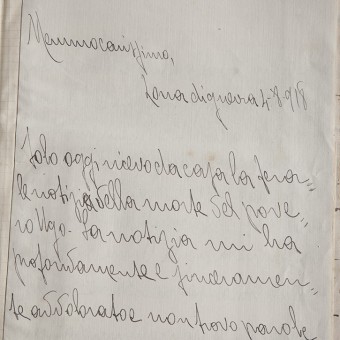 Memmo carissimo,
Zona di guerra 4-8-918
Solo oggi ricevo da casa la fera=
le notizia della morte del pove=
ro Ugo. La notizia mi ha
profondamente e sinceramen=
te addolorato e non trovo parole